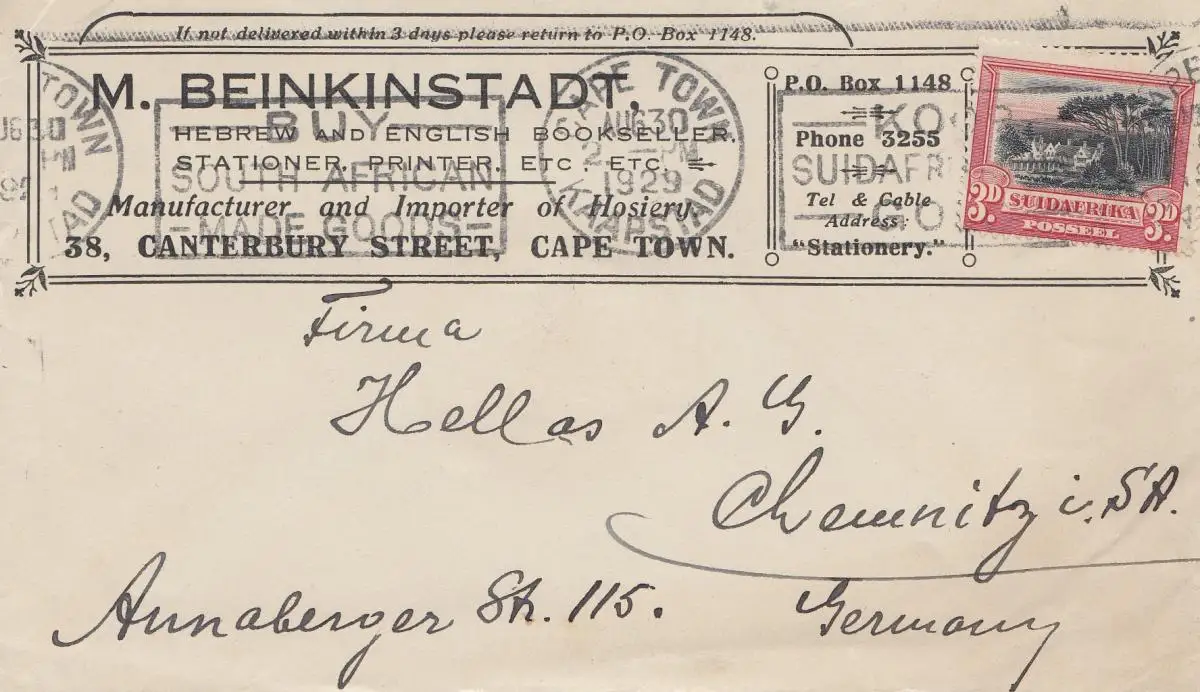 If not delivered within 3 days please return to P.O. Box 1148.
M. BEINKINSTADT,
HEBREW AND ENGLISH BOOKSELLER.
STATIONER, PRINTER, ETC. ETC.
Manufacturer and Importer of Hosiery.
38, CANTERBURY STREET, CAPE TOWN.
P.O. Box 1148
Phone 3255
Tel & Cable
Address:
"Stationery."
TOWN
BUY
SOUTH AFRICAN
MADE GOODS
CAPE TOWN
AUG 30
PM
1929
KAAPSTAD
SUIDAFR
3D. SUIDAFRIKA 3D.
POSSEEL
Firma
Hellas A. G.
Chemnitz i. SA.
Annaberger Str. 115.
Germany